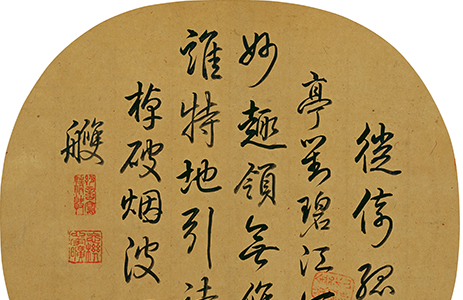 徙倚孤
亭對碧江
妙趣領無
誰特地引詩
棹破烟波
艭